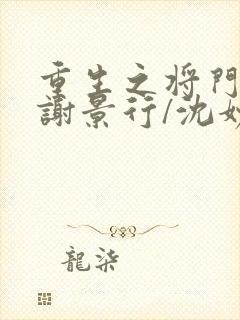 重生之将門
謝景行/沈妙
龍柒